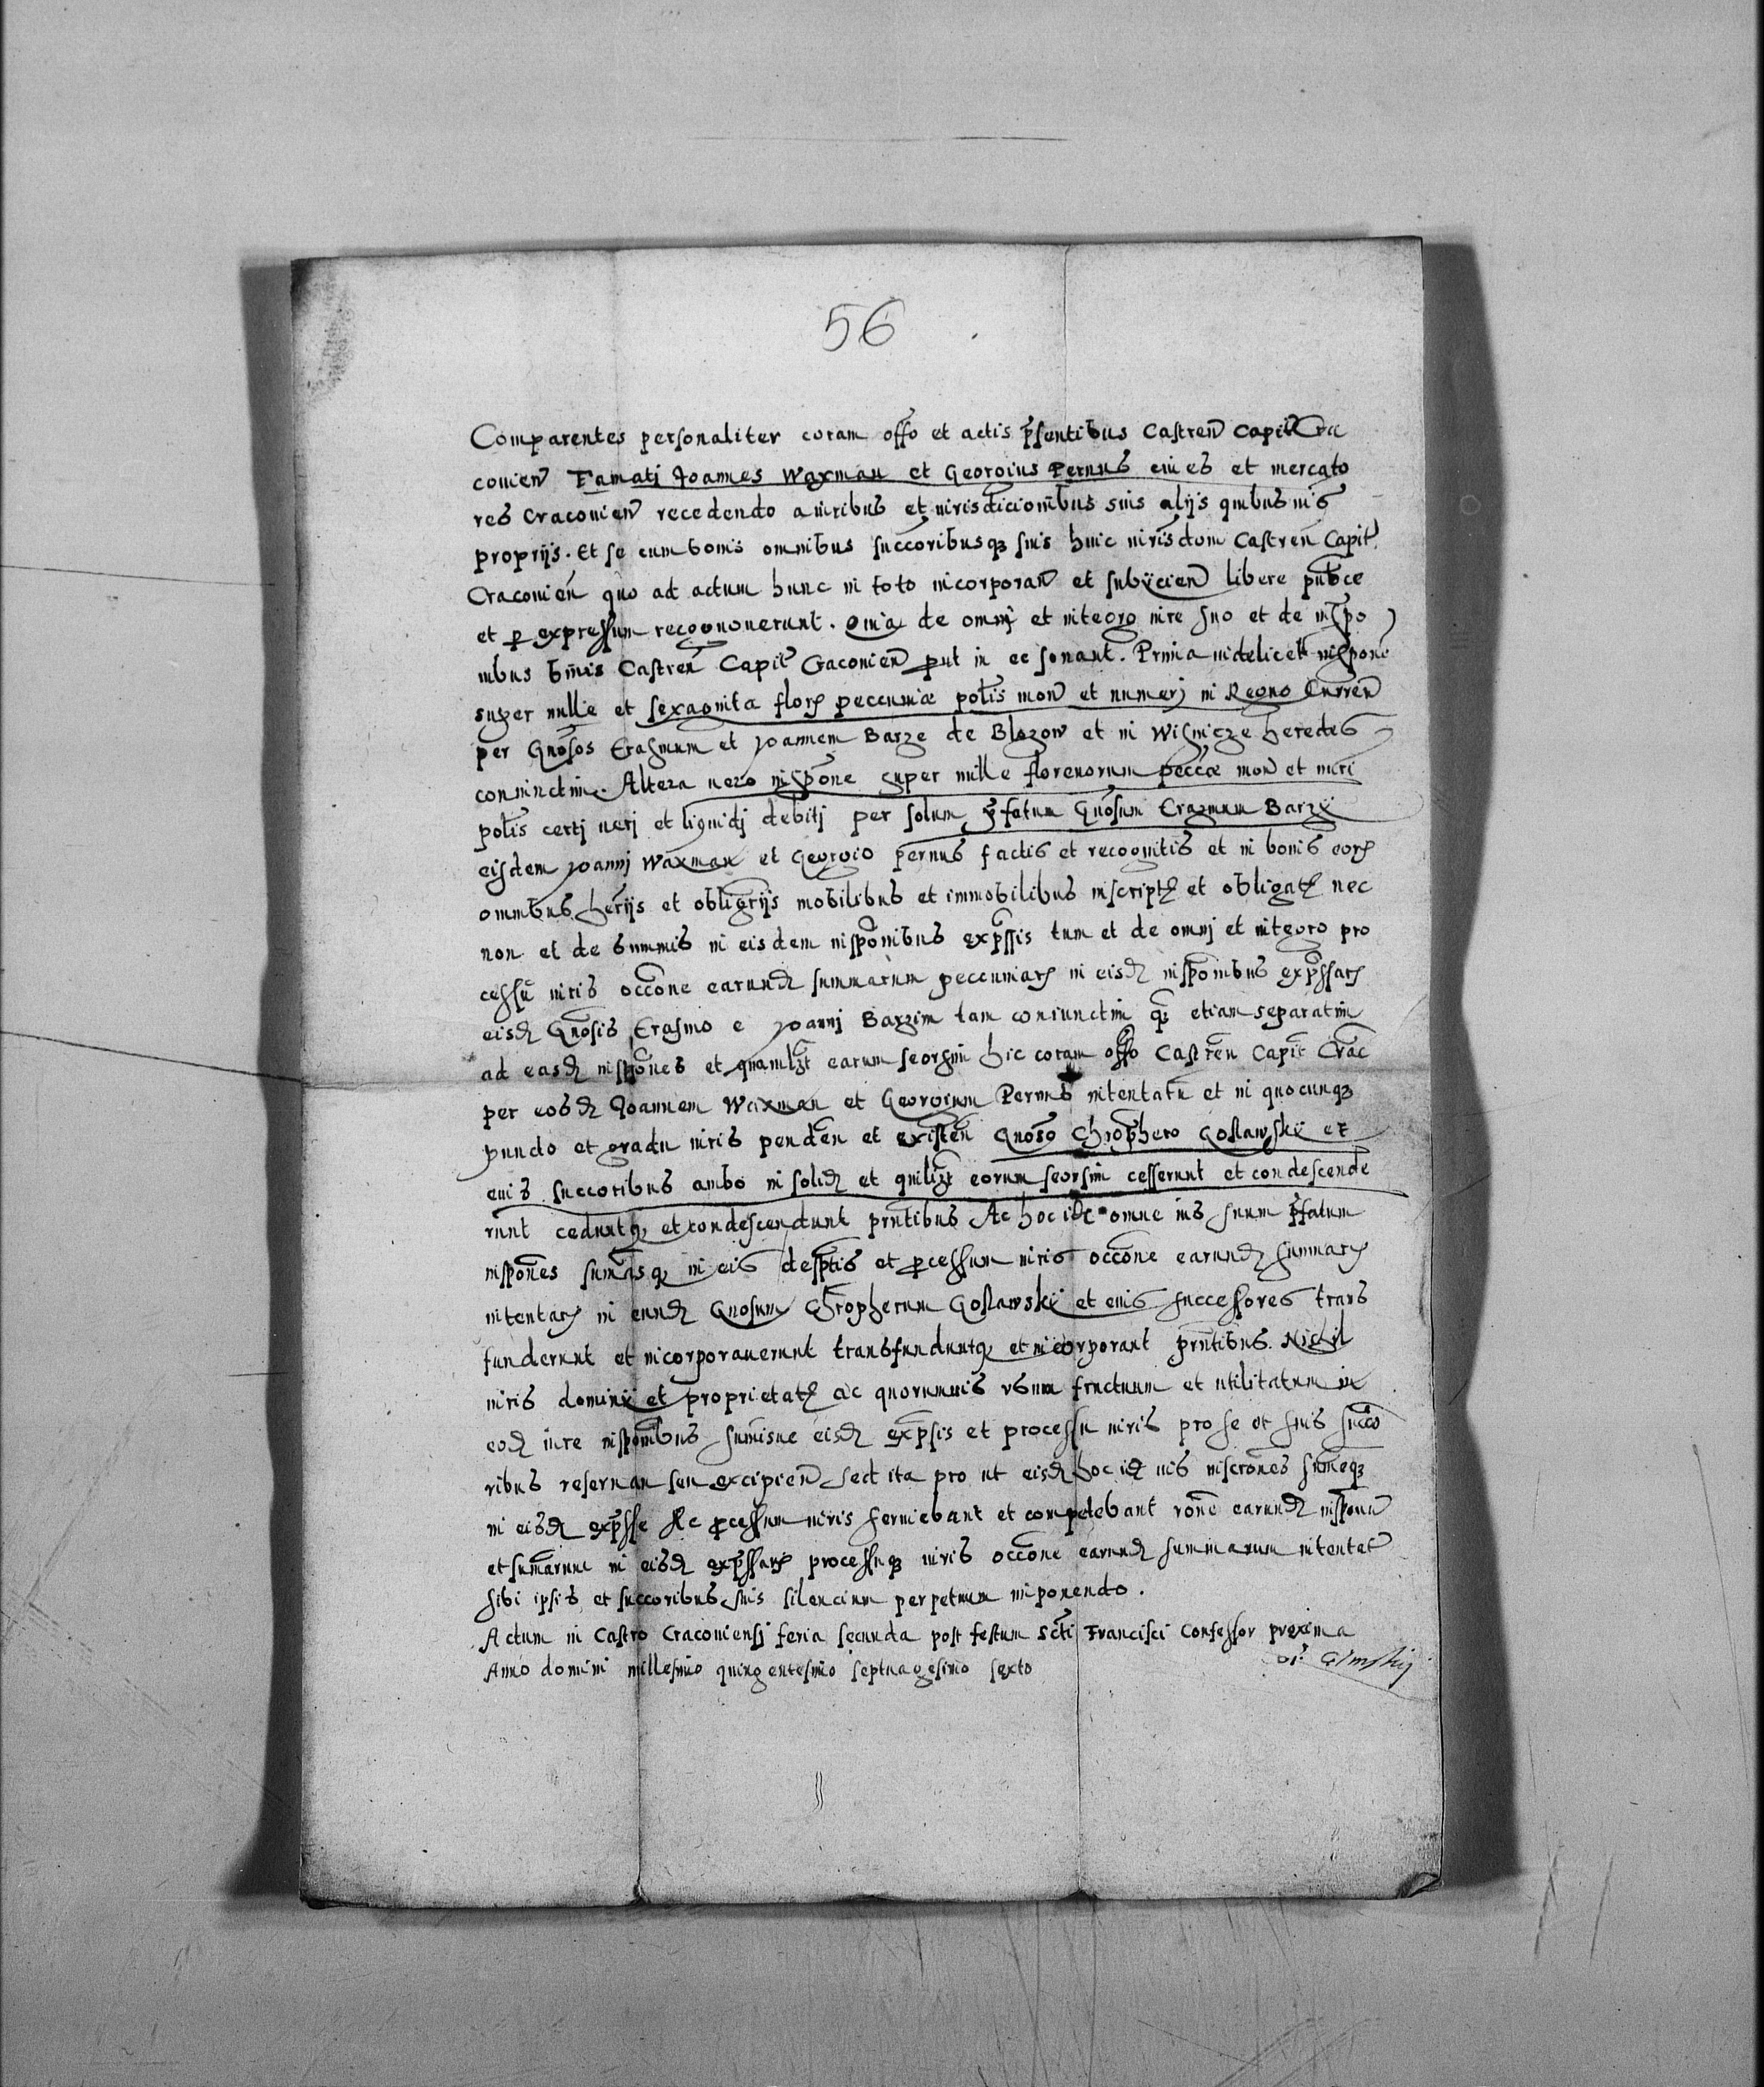 56
Comparentes personaliter coram offo et actis psentibus Castren Capit Cra
couien Famatj Joannes Waxman et Georgius Pernus ciues et mercato
res Cracouien recedendo a iuribus et iurisdicionibus suis alijs quibusuis
proprijs. Et se cum bonis omnibus succoribusq suis huic iurisdom Castren Capit
Cracouien quo ad actum hunc in toto incorporan et subijcien libere pubce
et p expressum recognouerunt. Quia de omnj et integro iure suo et de inspo
nibus binis Castren Capit Cracouien put in ee sonant. Prima uidelicet inspone
super mille et sexaginta flor pecuniæ polis mon et numerj in Regno Curren
per Gnosos Erasmum et Joannem Barze de Blozow et in Wisnicze heredes
coniunctim. Altera uero inspone super mille florenorum peccæ mon et nuri
polis certj uerj et liquidj debitj per solum pfatum Gnosum Erazmum Barzÿ
eisdem Joannj Waxman et Georgio Pernus factis et recognitis et in bonis eor
omnibus herijs et obligrijs mobilibus et immobilibus inscript et obligat nec
non et de summis in eisdem insponibus expssis tum et de omnj et integro pro
cessu iuris occone earund summarum pecuniar in eisd insponibus expssar
eisd Gnosis Erasmo e Joannj Barzim tam coniunctim q etiam separatim
ad easd inspones et quamlzt earum seorsim hic coram offo Castren Capit Crac
per eosd Joannem Waxman et Georgium Pernus intentatu et in quocunq
puncto et gradu iuris penden et existen Gnoso Chrophero Goslawskÿ et
eius succoribus ambo in solid et quilizt eorum seorsim cesserunt et condescende
runt ceduntq et condescendunt pntibus Ac hoc id omne ius suum pfatum
inspones sumasq in eis desptis et pcessum iuris occone earund summar
intentar in eund Gnosum Chropherum Goslawskÿ et eius successores trans
funderunt et incorporauerunt transfunduntq et incorporant pntibus. Nichil
iuris dominÿ et proprietat ac quorumuis vsuum fructuum et utilitatum in
eod iure insponibus sumisue eisd expsis et processu iuris pro se et suis succo
ribus reseruan seu excipien sed ita pro ut eisd hoc id ius inscrones sumeq
in eisd expsse Ac pcessum iuris seruiebant et competebant rone earund inspon
et sumarum in eisd expssar processuq iuris occone earund summarum intentat
sibi ipsis et succoribus suis silencium perpetuum imponendo.
Actum in Castro Cracouiensj feria secunda post festum scti Francisci Confessor proxima
Anno domini millesimo quingentesimo septuagesimo sexto